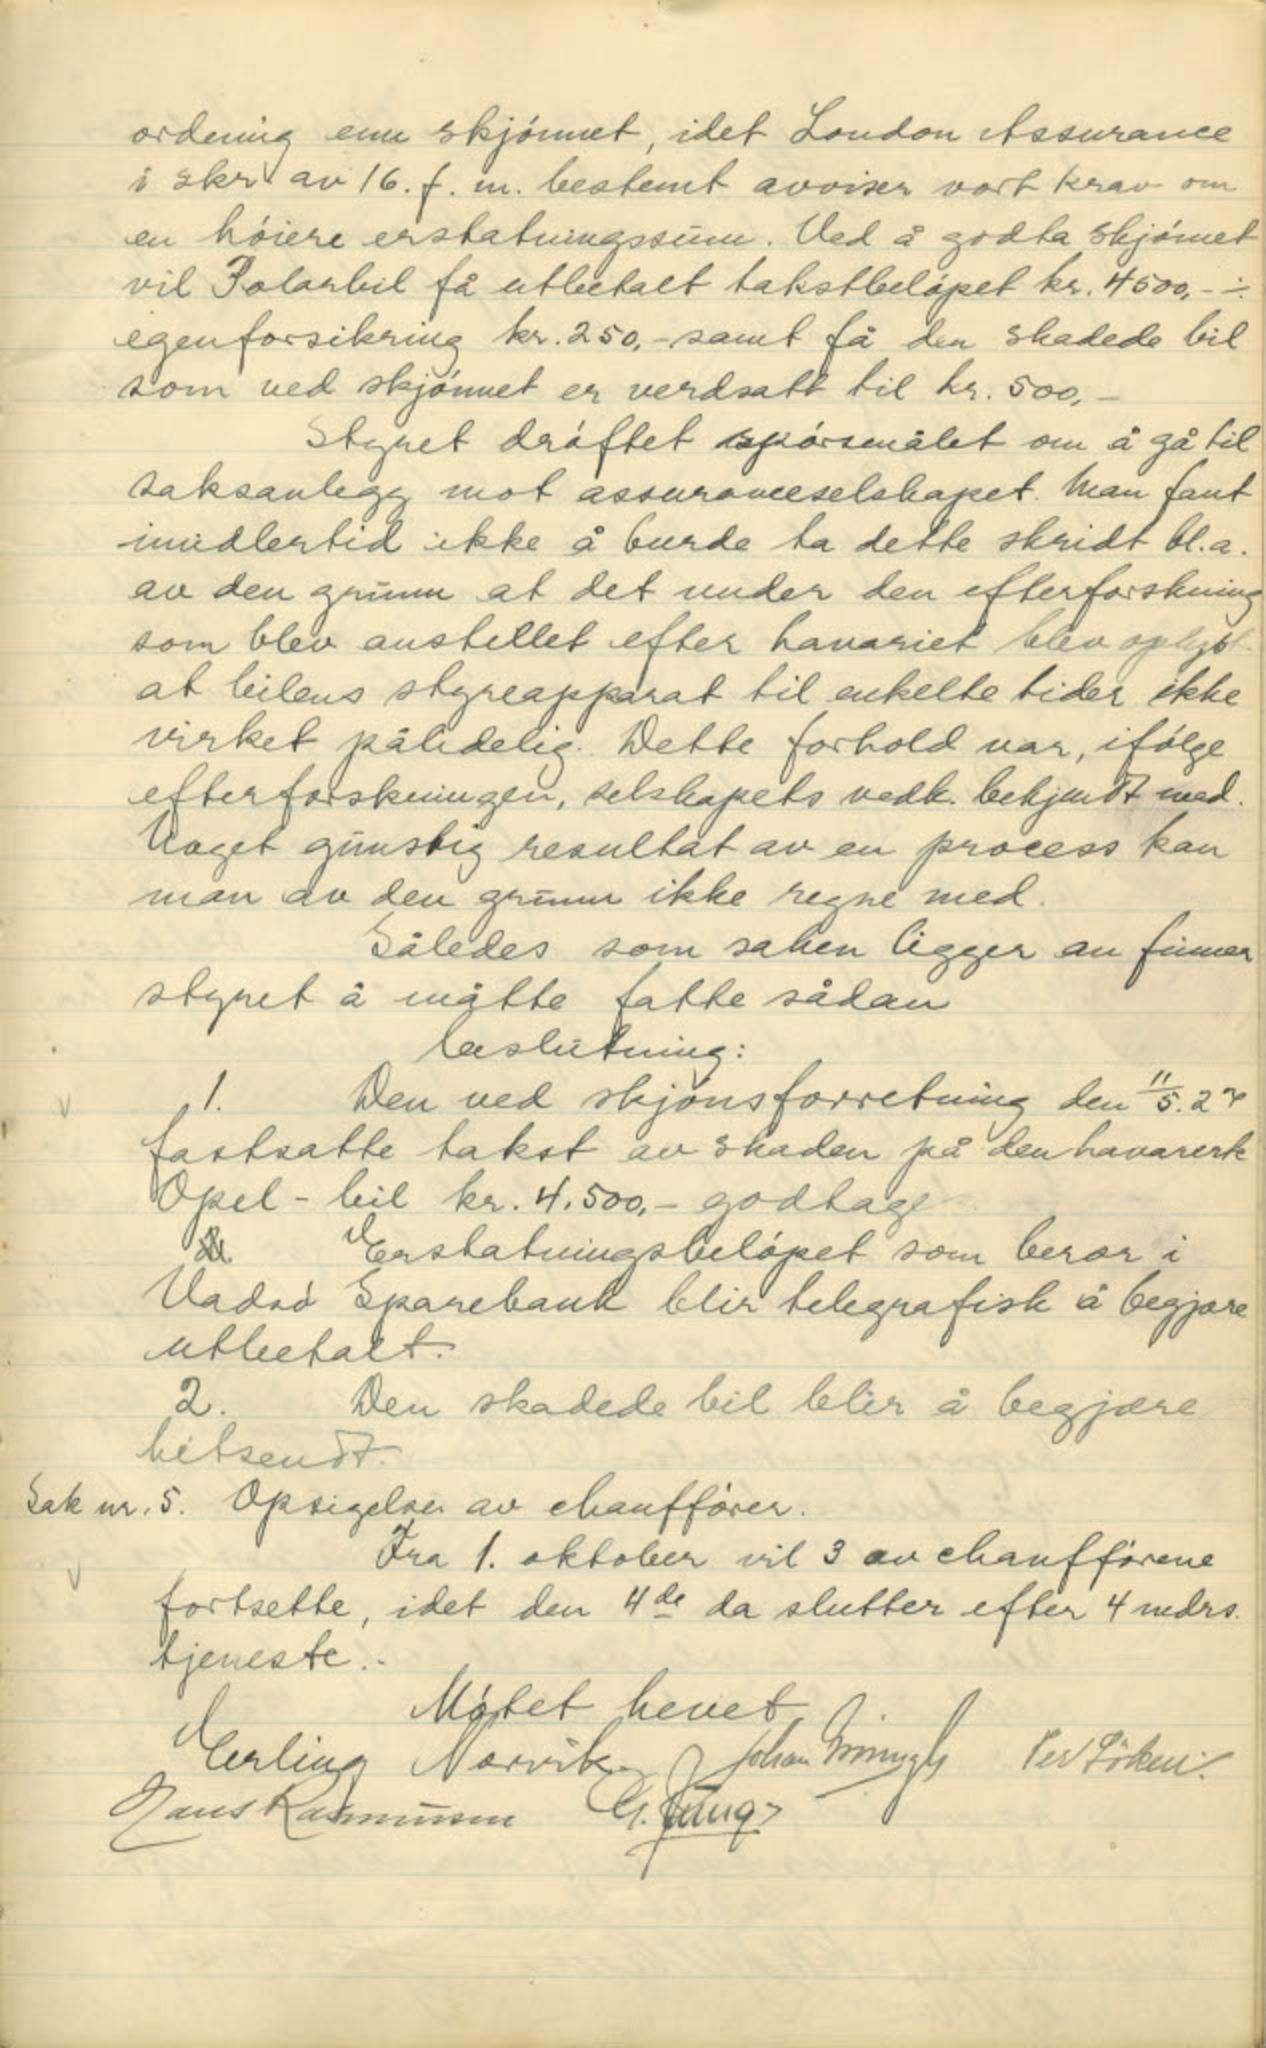 ordening enn skjönnet, idet London Assurance
i skr. av 16. f. m. bestemt avviser vort krav om
en höiere erstatningssum. Ved å godta skjönnet
vil Polarbil få utbetalt takstbelöpet kr. 4500,- ÷
egenforsikring kr. 250,- samt få den skadede bil
som ved skjönnet er verdsatt til kr. 500,-
Styret dröftet spörsmålet om å gå til
saksanlegg mot assuranceselskapet. Man fant
imidlertid ikke å burde ta dette skridt bl.a.
av den grunn at det under den efterforskning
som blev anstellet efter havariet blev oplyst
at bilens styreapparat til enkelte tider ikke
virket pålidelig. Dette forhold var, ifölge
efterforskningen, selskapets vedk. bekjendt med.
Noget gunstig resultat av en process kan
man av den grunn ikke regne med.
Således som saken ligger an finner
styret å måtte fatte sådan
beslutning:
1. Den ved skjönsforretning den 11/5. 
fastsatte takst av skaden på den havarerte
Opel-bil kr. 4.500,- godtage
Erstatningsbelöpet som beror i
Vadsö Sparebank blir telegrafisk å begjære
utbetalt.
2. Den skadede bil blir å begjære
hitsendt.
Sak nr. 5. Opsigelse av chauffører.
Fra 1. oktober vil 3 av chaufförene
fortsette, idet den 4de da slutter efter 4 mdrs.
tjeneste.-
Mötet hevet
Erling Norvik Johan Per
Hans Rasmussen G.